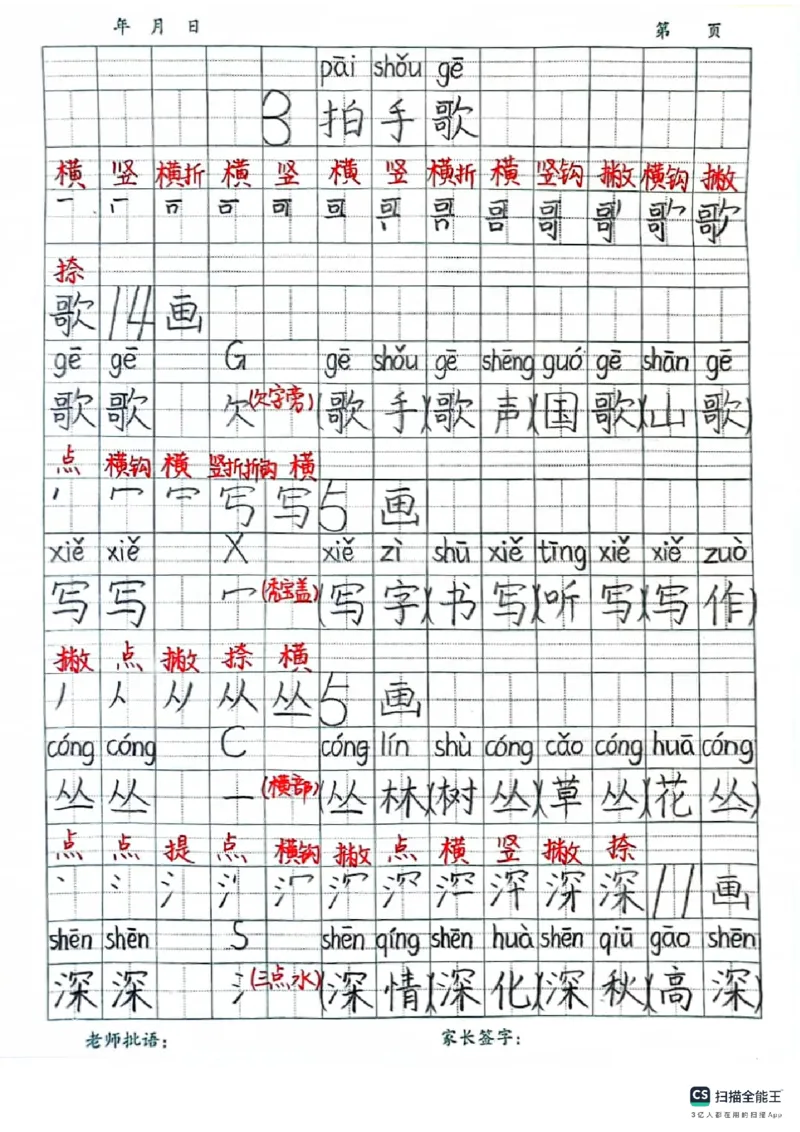 年 月 日 第 页
pāi shǒu gē
3 拍 手 歌
横 竖 横折 横 竖 横 竖 横折 横 竖钩 撇 横钩 撇
捺
歌 14 画
gē gē G gē shǒu gē shēng guó gē shān gē
歌 歌 欠(欠字旁) (歌 手)(歌 声)(国 歌)(山 歌)
点 横钩 横 竖折折钩 横
丶 冖 写 写 5 画
xiě xiě X xiě zì shū xiě tīng xiě xiě zuò
写 写 冖(秃宝盖) (写 字)(书 写)(听 写)(写 作)
撇 点 撇 捺 横
丿 人 从 丛 5 画
cóng cóng C cóng lín shù cóng cǎo cóng huā cóng
丛 丛 一(横部) (丛 林)(树 丛)(草 丛)(花 丛)
点 点 提 点 横钩 撇 点 横 竖 撇 捺
丶 冫 氵 深 11 画
shēn shēn S shēn qíng shēn huà shēn qiū gāo shēn
深 深 氵(三点水) (深 情)(深 化)(深 秋)(高 深)
老师批语: 家长签字:
CS 扫描全能王
3亿人都在用的扫描App